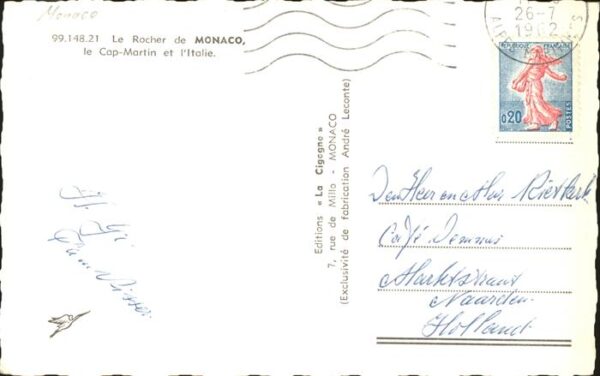 Monaco
99.148.21 Le Rocher de MONACO,
le Cap-Martin et l'Italie.
Editions « La Cigogne »
7, rue de Millo - MONACO
(Exclusivité de fabrication André Leconte)
26-7
1962
REPUBLIQUE FRANÇAISE
0,20
POSTES
Den Heer en Mev
Café
Marktstraat
Naarden
Holland